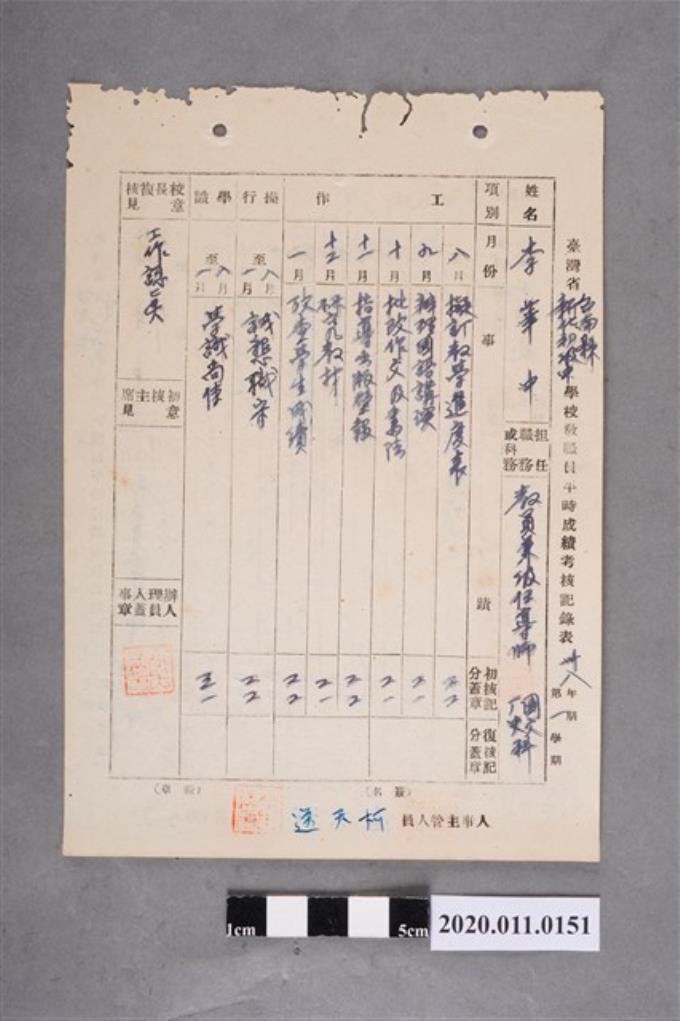 臺灣省台南縣新化初級中學校教職員平時成績考核記錄表
卅八年第一學期
姓名
李華中
担任職務或科務
教員兼級任導師
國文科
項別
月份
事蹟
初核記分蓋章
復核記分蓋章
工作
八月
擬訂教學進度表
九月
辦理國語講演
十月
批改作文及書法
十一月
指導出版壁報
十二月
研究教材
一月
考查學生成績
操行
八月至一月
誠懇職守
學識
八月至一月
學識尚佳
校長復核意見
工作認真
初核主席意見
辦理人事人員蓋章
人事主管人員
柯天送
（簽名）
（蓋章）
1cm
5cm
2020.011.0151